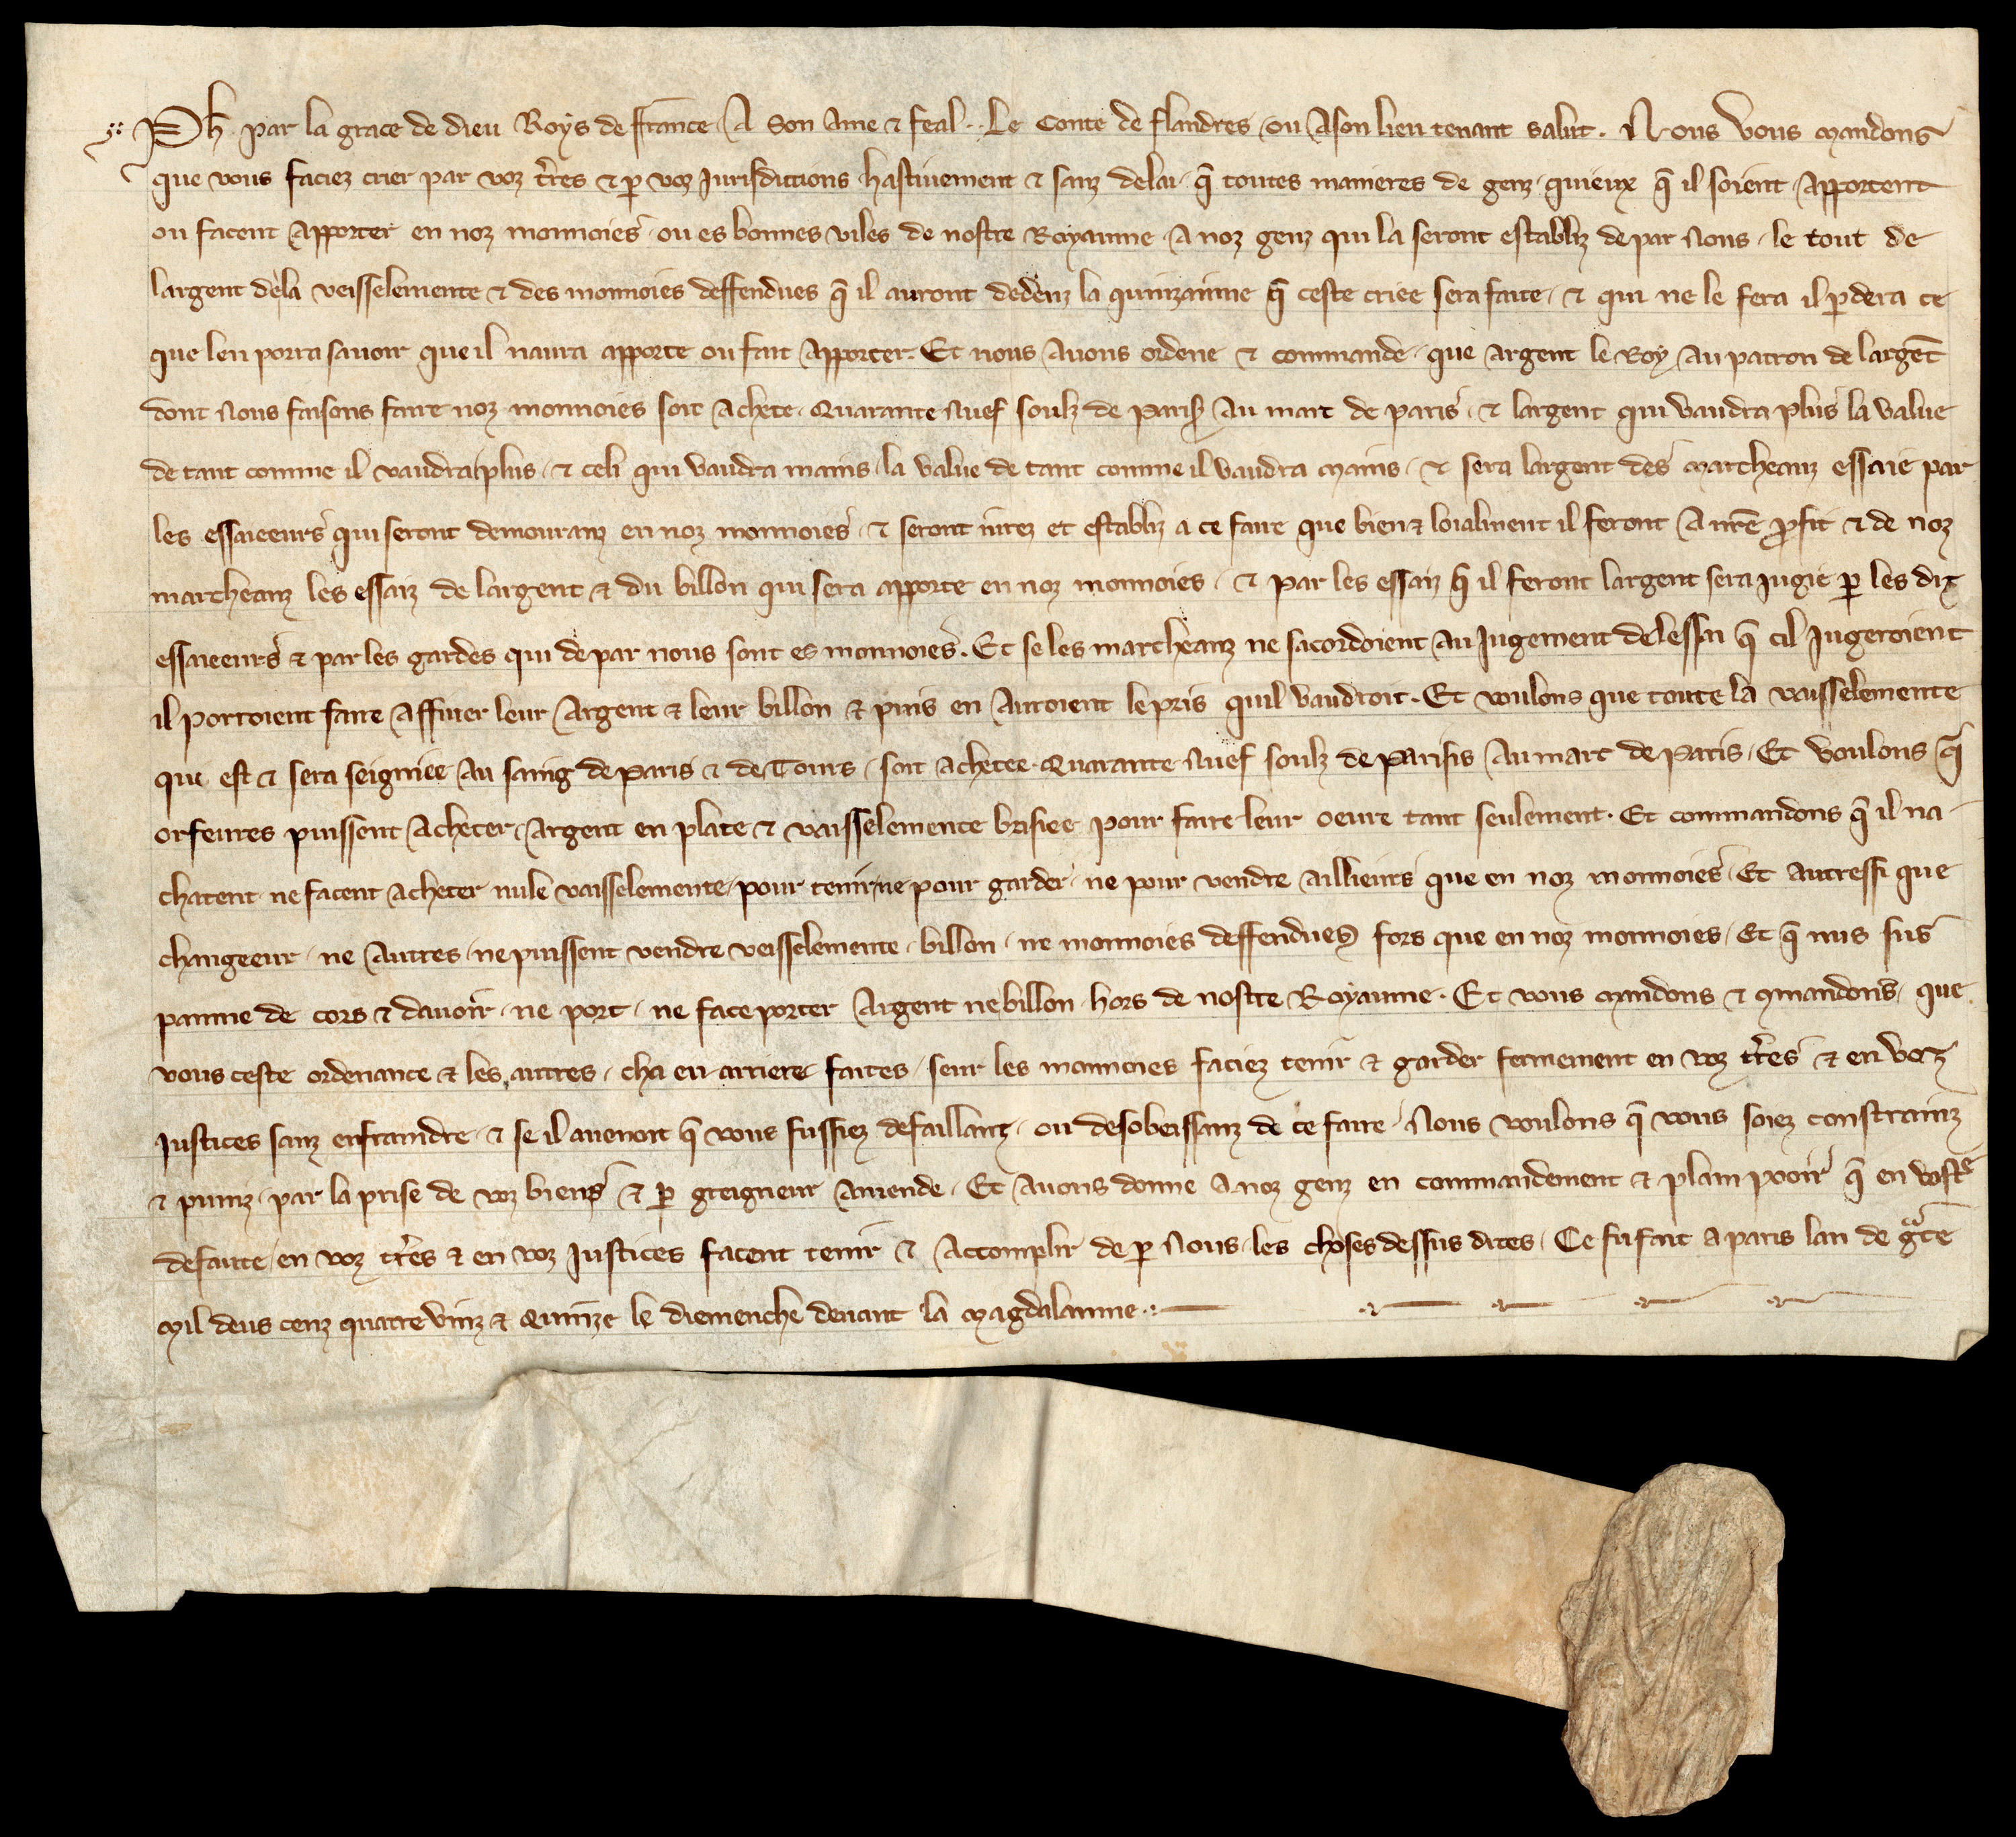 Ph. par la grace de dieu Roys de france. A son ame & feal .. Le Conte de flandres ou A son lieu tenant salut. Nous vous mandons
que vous faciez crier par voz t̄res & ꝑ voz Jurisdictions hastiuement & sanz delai. q̄ toutes manieres de genz. quieux q̄ il soient. Apportent
ou facent Apporter en noz monnoies. ou es bonnes viles de nostre Royaume. A noz genz qui la seront establiz de par Nous. le tout de
largent dela veisselemente & des monnoies deffendues q̄ il auront dedenz la quinzainne q̄ ceste criee sera faite. & qui ne le fera il ꝑdera ce
que len porra sauoir que il naura apporte ou fait Apporter. Et nous Auons ordene & commande. que argent le Roy Au patron de largēt
dont Nous faisons faire noz monnoies soit Achete. Quarante Nuef soulz de Paris̄ Au marc de paris. & largent qui vaudra plus la value
de tant comme il vaudra plus. & celi qui vaudra mains. la value de tant comme il vaudra mains. & sera largent des marcheanz essaie par
les essaieeurs qui seront demouranz en noz monnoies. & seront iurez et establiz a ce faire que bien & loialment il feront A nr̄e ꝓfit & de noz
marcheanz les essaiz de largent & du billon qui sera apporte en noz monnoies. & par les essaiz q̄ il feront largent sera Jugie ꝑ les diz
essaieeurs & par les gardes qui de par nous sont es monnoies. Et se les marcheanz ne sacordoient Au Jugement de lessai q̄ cil Jugeroient
il porroient faire Affiner leur Argent & leur billon & puis en Auroient le pris quil vaudroit. Et voulons que toute la vaisselemente
qui est & sera seigniee Au saing de Paris & de Tours. soit achetee. Quarante Nuef soulz de Parisis Au marc de Paris. Et voulons q̄
orfeures puissent Acheter. Argent en plate & vaisselemente brisiee pour faire leur oeure tant seulement. Et commandons q̄ il na-
chatent ne facent Acheter nule vaisselemente. pour tenir. ne pour garder. ne pour vendre Aillieurs que en noz monnoies. Et autressi que
changeeur. ne Autres. ne puissent vendre veisselemente. billon. ne monnoies deffendues fors que en noz monnoies. Et q̄ nus sus
painne de cors & dauoir. ne port. ne face porter Argent ne billon. hors de nostre Royaume. Et vous mandons & 9mandons. que
vous ceste ordenance & les autres. cha en arriere faites. seur les monnoies faciez tenir & garder fermement en voz t̄res & en voz
Justices sanz enfraindre. & se il auenoit q̄ vous fussiez defaillanz. ou desobeissanz de ce faire. Nous voulons q̄ vous soiez constrainz
& puniz. par la prise de voz biens & ꝑ greigneur Amende. Et Auons donne A noz genz en commandement & plain pooir q̄ en vostre
defaute. en voz t̄res & en voz Justices facent tenir & Accomplir de ꝑ Nous. les choses dessus dites. Ce fu fait a paris lan de gᵃce
Mil deus cenz quatre vinz & Quinze le diemenche deuant la Magdalainne.